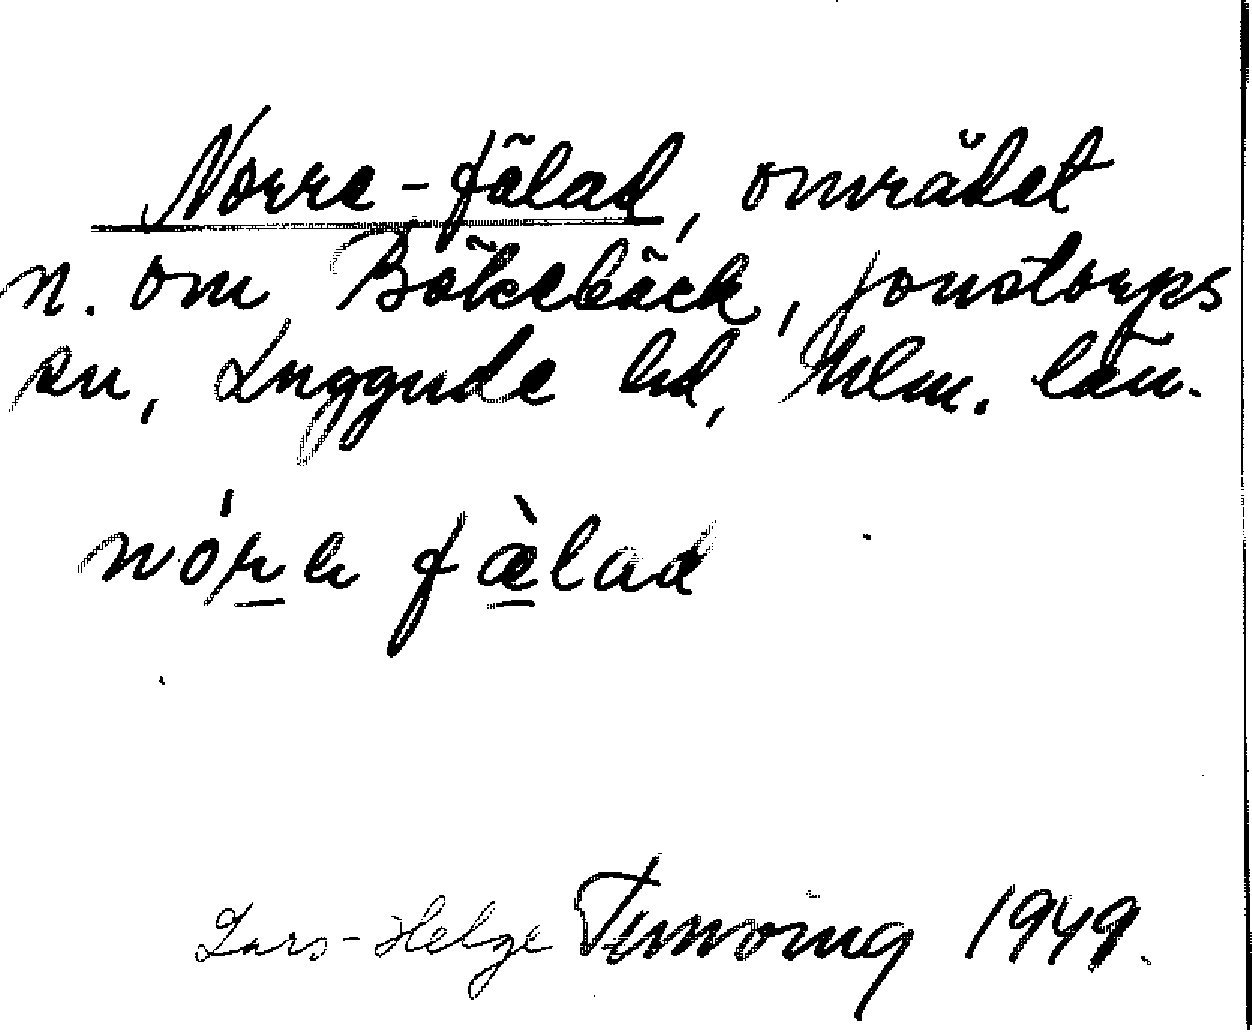 Norre-fälad, området
n. om Bökebäck, Jonstorps
sn, Luggude hd, Mlm. län.
nórə fæ̀lad
Lars-Helge Tunving 1949.